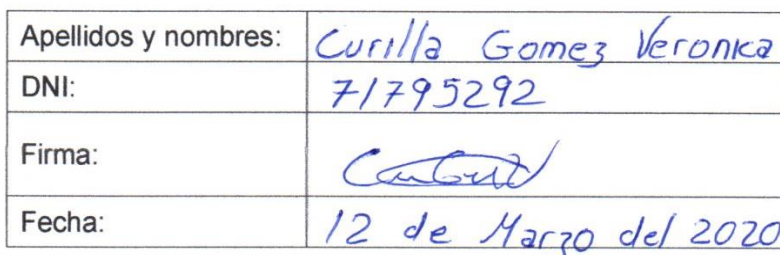 Apellidos y nombres: Curilla Gomez Veronica
DNI: 71795292
Firma:
Fecha: 12 de Marzo del 2020